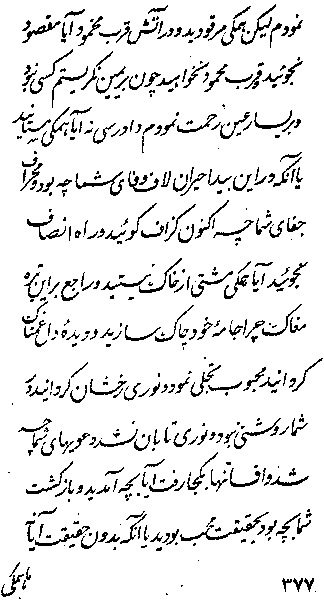 نمودم لیکن همگی مرقود بدو در آتش قرب محمود آیا مقصود
نجوئید و قرب محمود نخواهید چون بر یمین نگریستم کسی نبود
و بر یسار عین رحمت نمودم دادرسی نه آیا همگی مستانید
یا آنکه در این بیدا حیران لاف وفای شما چه بود و انحراف
جفای شما چه اکنون گزاف گوئید و راه انصاف
نجوئید آیا همگی مشتی از خاک نیستید و راجع بر این تیره
مغاک چرا جامهٔ خود چاک سازید و دیدهٔ داغ غمناک
گردانید محبوب تجلی نمود و نوری رخشان گردانید در
شما روشنی نبود و نوری تابان نشد دعویهای شما چه
شد و افاتنها بکجا رفت آیا بچه آمدید و بازگشت
شما بچه بود بحقیقت محب بودید یا آنکه بدون حقیقت آیا
ما همگی
۳۷۷